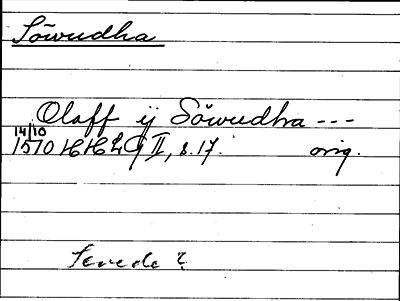 Söwudha
Olaff ij Söwudha ---
14/10
1510 HH29 II, s. 17. orig.
Senede ?